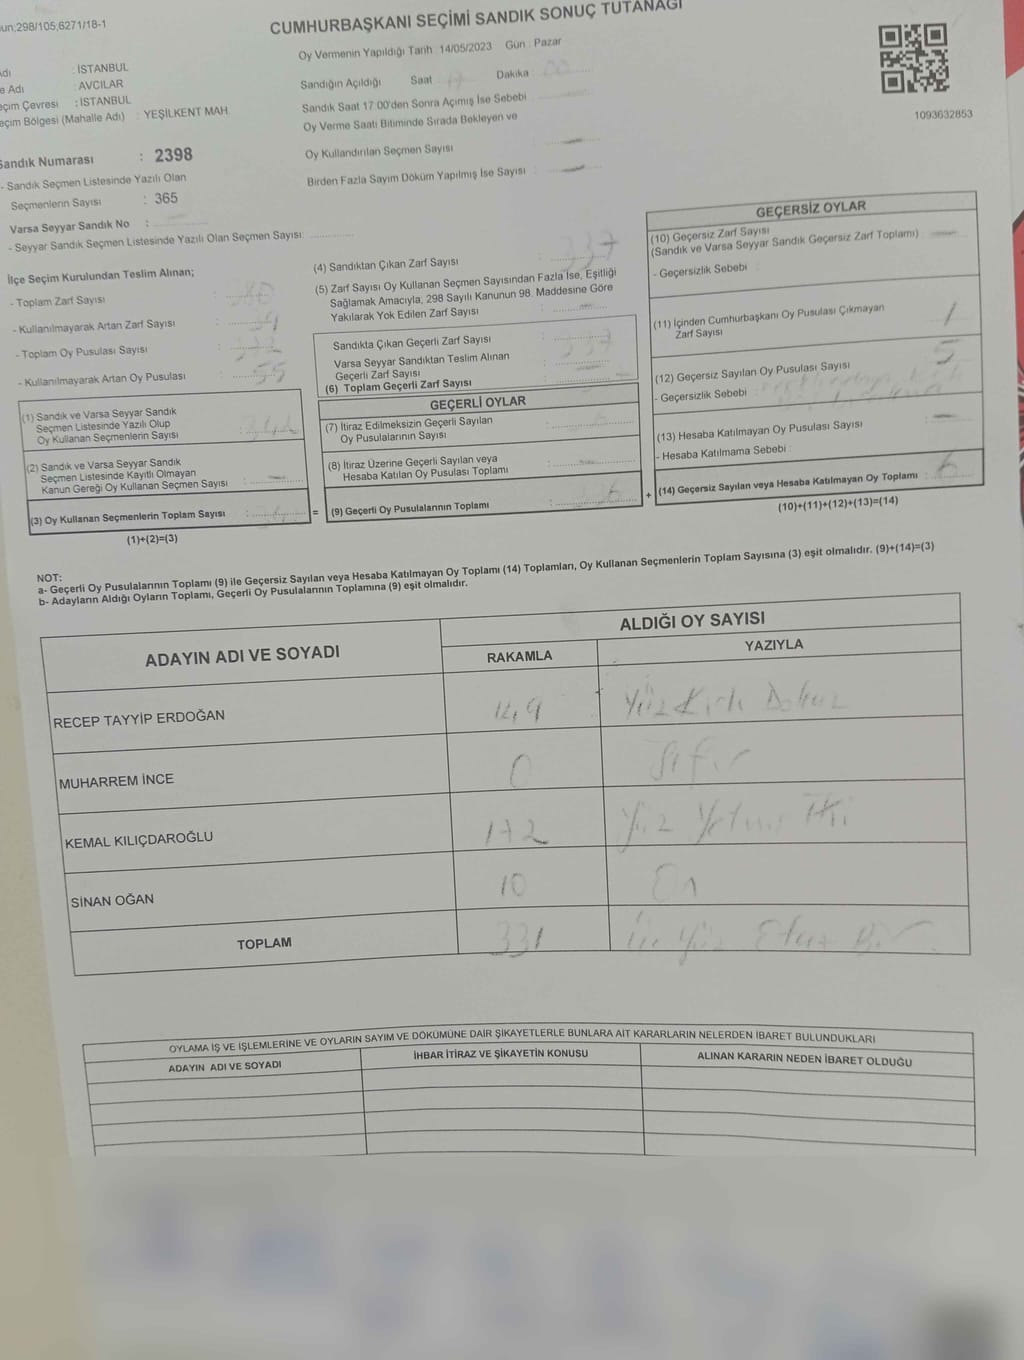 CUMHURBAŞKANI SEÇİMİ SANDIK SONUÇ TUTANAĞI
298/105,6271/18-1
Oy Vermenin Yapıldığı Tarih : 14/05/2023 Gün : Pazar
: İSTANBUL
Adı : AVCILAR
Seçim Çevresi : İSTANBUL
Seçim Bölgesi (Mahalle Adı) : YEŞİLKENT MAH.
Sandığın Açıldığı Saat : 17 Dakika : 00
Sandık Saat 17:00'den Sonra Açımış İse Sebebi :
Oy Verme Saati Bitiminde Sırada Bekleyen ve
Oy Kullandırılan Seçmen Sayısı : —
Birden Fazla Sayım Döküm Yapılmış İse Sayısı : —
1093632853
Sandık Numarası : 2398
- Sandık Seçmen Listesinde Yazılı Olan
Seçmenlerin Sayısı : 365
Varsa Seyyar Sandık No :
- Seyyar Sandık Seçmen Listesinde Yazılı Olan Seçmen Sayısı:
İlçe Seçim Kurulundan Teslim Alınan;
- Toplam Zarf Sayısı :
- Kullanılmayarak Artan Zarf Sayısı :
- Toplam Oy Pusulası Sayısı :
- Kullanılmayarak Artan Oy Pusulası : 55
(1) Sandık ve Varsa Seyyar Sandık
Seçmen Listesinde Yazılı Olup
Oy Kullanan Seçmenlerin Sayısı :
(2) Sandık ve Varsa Seyyar Sandık
Seçmen Listesinde Kayıtlı Olmayan
Kanun Gereği Oy Kullanan Seçmen Sayısı : —
(3) Oy Kullanan Seçmenlerin Toplam Sayısı :
(1)+(2)=(3)
(4) Sandıktan Çıkan Zarf Sayısı : 337
(5) Zarf Sayısı Oy Kullanan Seçmen Sayısından Fazla İse, Eşitliği
Sağlamak Amacıyla, 298 Sayılı Kanunun 98. Maddesine Göre
Yakılarak Yok Edilen Zarf Sayısı : —
Sandıkta Çıkan Geçerli Zarf Sayısı : 337
Varsa Seyyar Sandıktan Teslim Alınan
Geçerli Zarf Sayısı : —
(6) Toplam Geçerli Zarf Sayısı :
GEÇERLİ OYLAR
(7) İtiraz Edilmeksizin Geçerli Sayılan
Oy Pusulalarının Sayısı :
(8) İtiraz Üzerine Geçerli Sayılan veya
Hesaba Katılan Oy Pusulası Toplamı : —
= (9) Geçerli Oy Pusulalarının Toplamı :
GEÇERSİZ OYLAR
(10) Geçersiz Zarf Sayısı
(Sandık ve Varsa Seyyar Sandık Geçersiz Zarf Toplamı) : —
- Geçersizlik Sebebi :
(11) İçinden Cumhurbaşkanı Oy Pusulası Çıkmayan
Zarf Sayısı : 1
(12) Geçersiz Sayılan Oy Pusulası Sayısı : 5
- Geçersizlik Sebebi :
(13) Hesaba Katılmayan Oy Pusulası Sayısı : —
- Hesaba Katılmama Sebebi :
+ (14) Geçersiz Sayılan veya Hesaba Katılmayan Oy Toplamı : 6
(10)+(11)+(12)+(13)=(14)
NOT:
a- Geçerli Oy Pusulalarının Toplamı (9) ile Geçersiz Sayılan veya Hesaba Katılmayan Oy Toplamı (14) Toplamları, Oy Kullanan Seçmenlerin Toplam Sayısına (3) eşit olmalıdır. (9)+(14)=(3)
b- Adayların Aldığı Oyların Toplamı, Geçerli Oy Pusulalarının Toplamına (9) eşit olmalıdır.
ADAYIN ADI VE SOYADI ALDIĞI OY SAYISI
RAKAMLA YAZIYLA
RECEP TAYYİP ERDOĞAN 149 Yüz Kırk Dokuz
MUHARREM İNCE 0 Sıfır
KEMAL KILIÇDAROĞLU 172 Yüz Yetmiş İki
SİNAN OĞAN 10 On
TOPLAM 331 Üç Yüz Otuz Bir
OYLAMA İŞ VE İŞLEMLERİNE VE OYLARIN SAYIM VE DÖKÜMÜNE DAİR ŞİKAYETLERLE BUNLARA AİT KARARLARIN NELERDEN İBARET BULUNDUKLARI
ADAYIN ADI VE SOYADI İHBAR İTİRAZ VE ŞİKAYETİN KONUSU ALINAN KARARIN NEDEN İBARET OLDUĞU